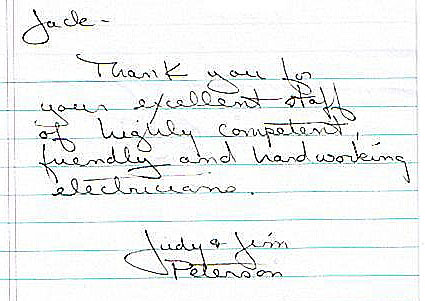 Jack-
Thank you for
your excellent staff
of highly competent,
friendly and hardworking
electricians.
Judy & Jim
Peterson